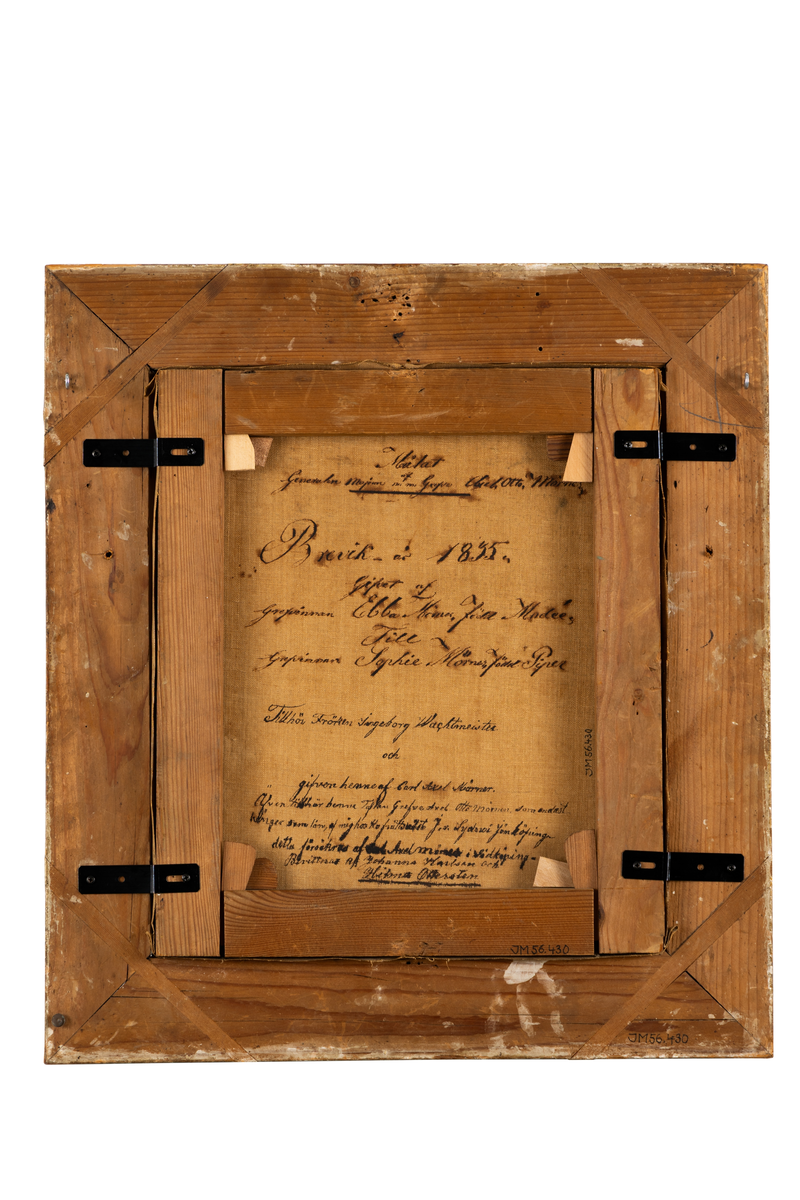 Målat
af
Generalen Majoren m m Grefve Axel Otto Mörner
Brevik - år 1835.
Gifvet af
Grefvinnan Ebba Mörner, född Modée,
Till
Grefvinnan Sophie Mörner, född Piper
Tillhör Fröken Ingeborg Wachtmeister
och
gifven henne af Carl Axel Mörner.
Äfven tillhör henne Taflan Grefve Axel Otto Mörner, som endast
hänger som lån, af
detta försäkras af Axel Mörner i Lidköping -
Bevittnas af Johanna Karlsson och
Hilma Ottersten
JM 56.430
JM 56.430
JM 56.430